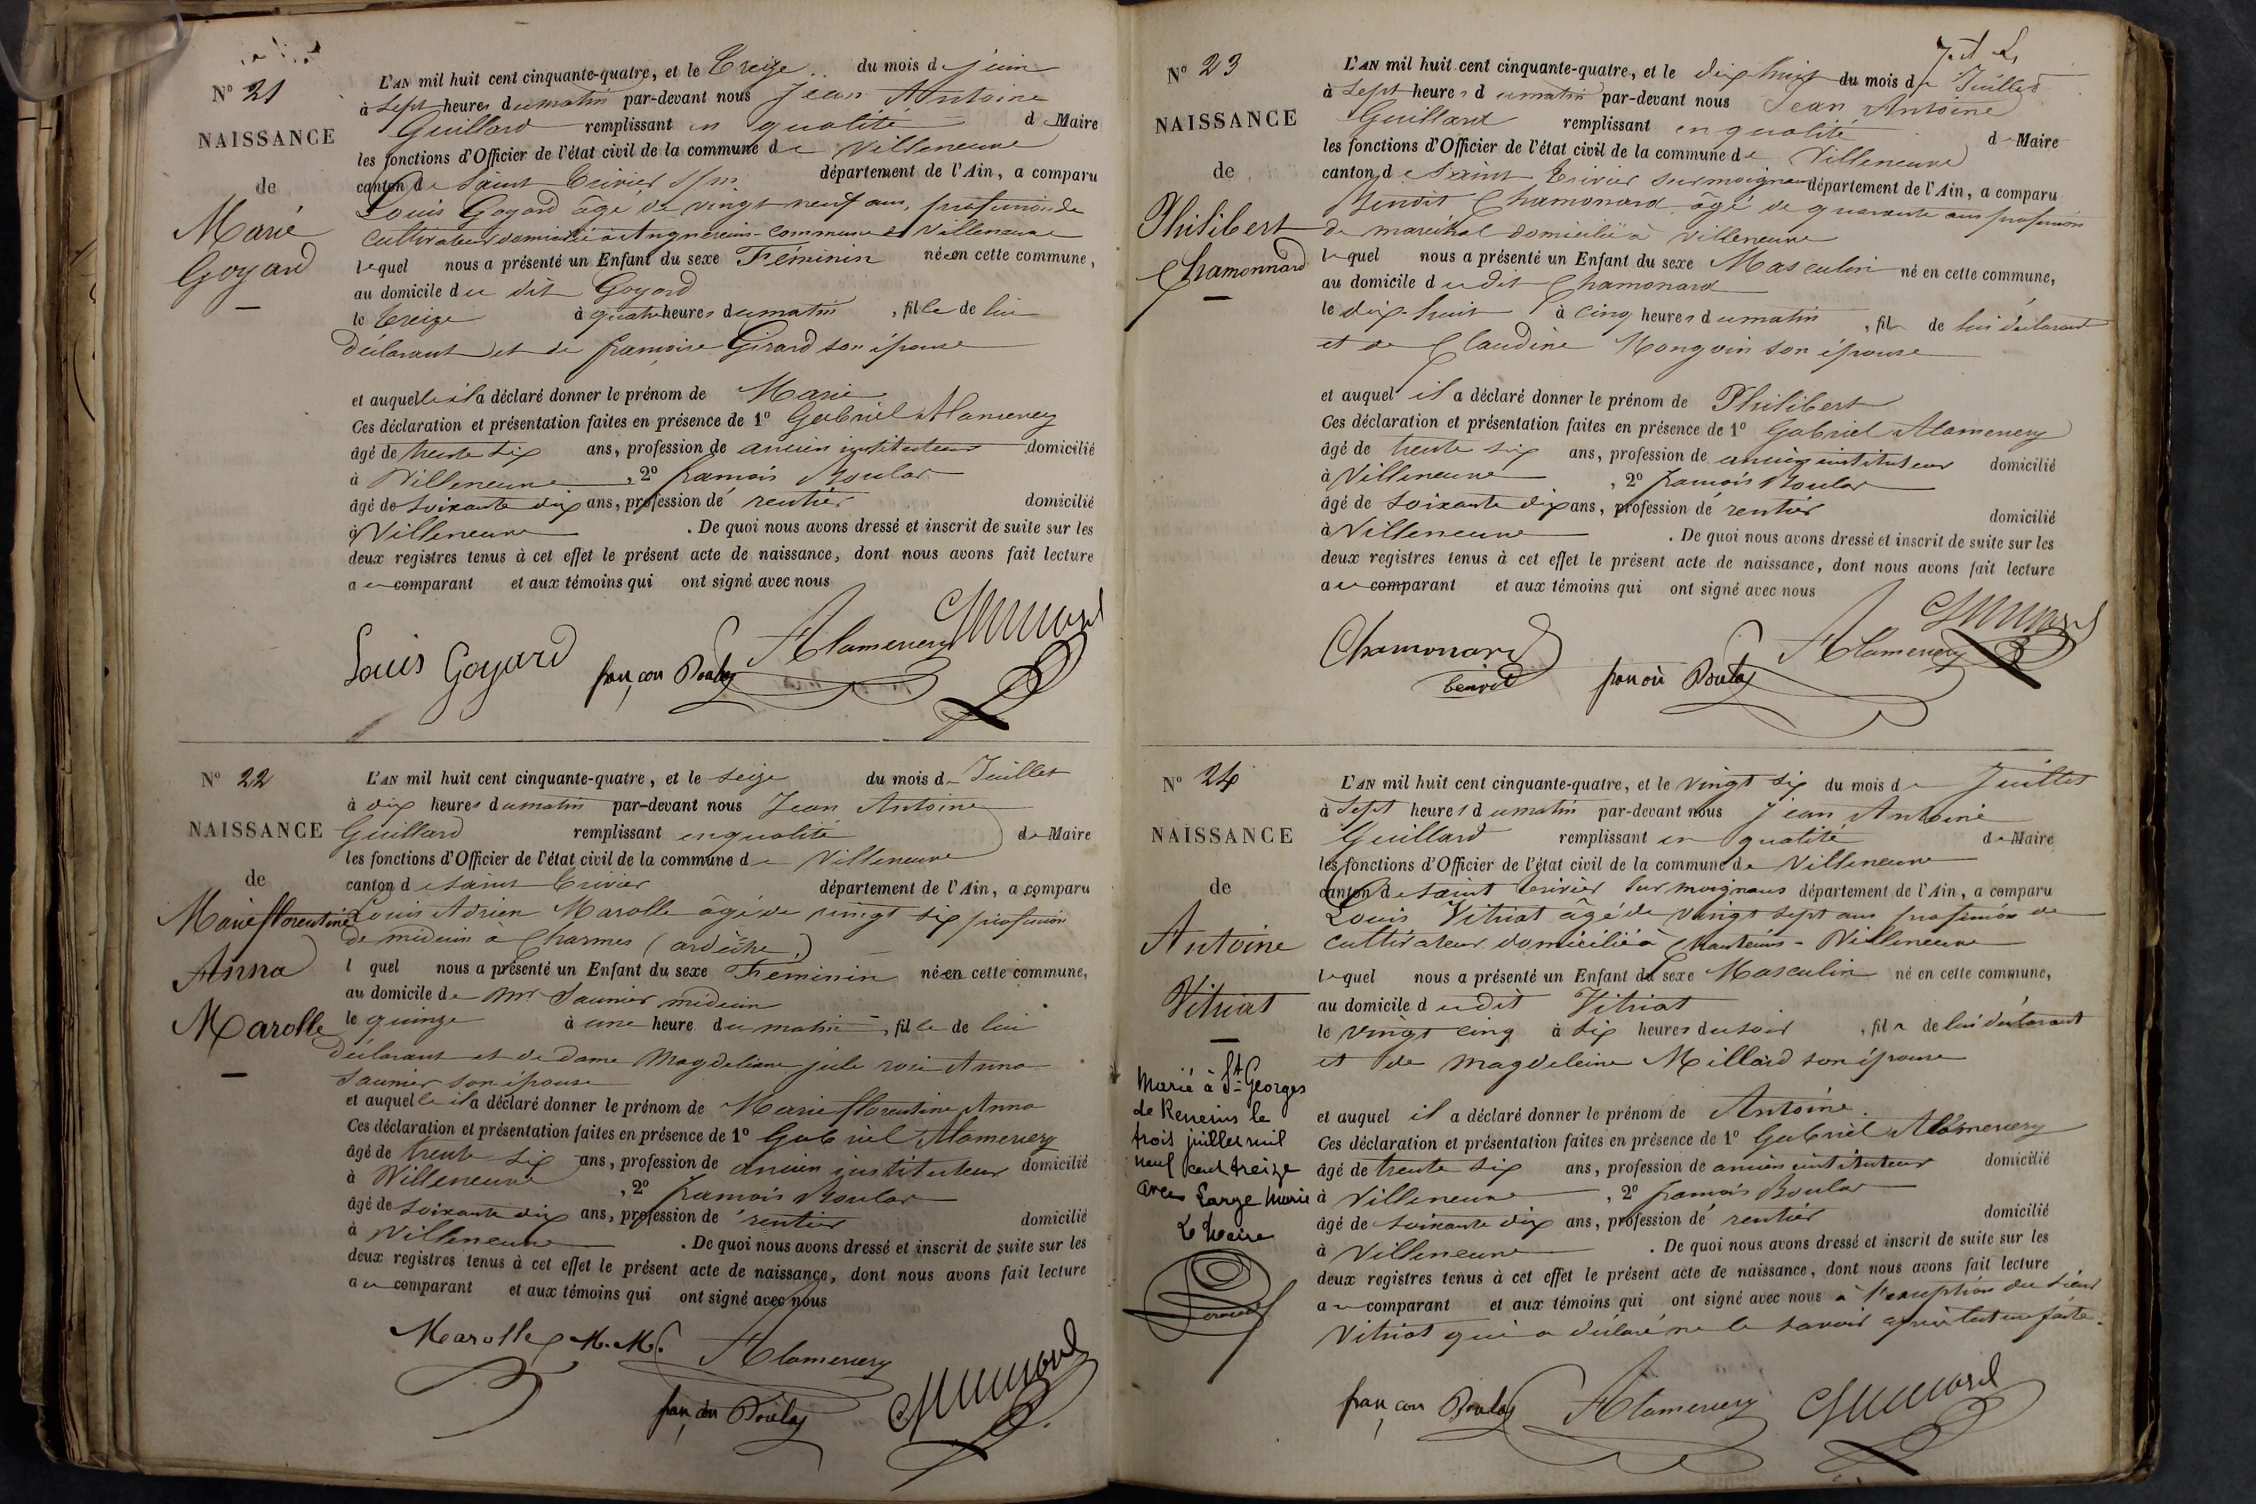 N° 21
NAISSANCE
de
Marie
Goyard
L'AN mil huit cent cinquante-quatre, et le Treize du mois de juin
à Sept heures du matin par-devant nous Jean Antoine
Guillard remplissant en qualité de Maire
les fonctions d'Officier de l'état civil de la commune de Villeneuve
canton de Saint Trivier s/m département de l'Ain, a comparu
Louis Goyard âgé de vingt neuf ans, profession de
cultivateur domicilié à commune de Villeneuve
lequel nous a présenté un Enfant du sexe Féminin né en cette commune,
au domicile du dit Goyard
le treize à quatre heures du matin, fille de lui
déclarant et de françoise Girard son épouse
et auquelle il a déclaré donner le prénom de Marie
Ces déclaration et présentation faites en présence de 1° Gabriel Alamercery
âgé de trente six ans, profession de ancien instituteur domicilié
à Villeneuve, 2° françois Boulas
âgé de soixante dix ans, profession de rentier domicilié
à Villeneuve. De quoi nous avons dressé et inscrit de suite sur les
deux registres tenus à cet effet le présent acte de naissance, dont nous avons fait lecture
au comparant et aux témoins qui ont signé avec nous
Louis Goyard françois Boulas Alamercery Guillard
N° 22
NAISSANCE
de
Marie florentine
Anna
Marolle
L'AN mil huit cent cinquante-quatre, et le seize du mois de Juillet
à dix heures du matin par-devant nous Jean Antoine
Guillard remplissant en qualité de Maire
les fonctions d'Officier de l'état civil de la commune de Villeneuve
canton de saint Trivier département de l'Ain, a comparu
Louis Adrien Marolle âgé de vingt six profession
de médecin à Charmes (ardèche)
l quel nous a présenté un Enfant du sexe Féminin né en cette commune,
au domicile de Mr Saunier médecin
le quinze à une heure du matin, fille de lui
déclarant et de dame Magdeleine Anna
Saunier son épouse
et auquelle il a déclaré donner le prénom de Marie florentine Anna
Ces déclaration et présentation faites en présence de 1° Gabriel Alamercery
âgé de trente six ans, profession de ancien instituteur domicilié
à Villeneuve, 2° françois Boulas
âgé de soixante dix ans, profession de rentier domicilié
à Villeneuve. De quoi nous avons dressé et inscrit de suite sur les
deux registres tenus à cet effet le présent acte de naissance, dont nous avons fait lecture
au comparant et aux témoins qui ont signé avec nous
Marolle Alamercery
françois Boulas Guillard
N° 23
NAISSANCE
de
Philibert
Chamonnard
L'AN mil huit cent cinquante-quatre, et le dix huit du mois de Juillet
à Sept heures du matin par-devant nous Jean Antoine
Guillard remplissant en qualité de Maire
les fonctions d'Officier de l'état civil de la commune de Villeneuve
canton de Saint Trivier sur moignans département de l'Ain, a comparu
Benoit Chamonard âgé de quarante ans profession
de maréchal domicilié à Villeneuve
lequel nous a présenté un Enfant du sexe Masculin né en cette commune,
au domicile du dit Chamonard
le dix-huit à cinq heures du matin, fils de lui déclarant
et de Claudine Mongoin son épouse
et auquel il a déclaré donner le prénom de Philibert
Ces déclaration et présentation faites en présence de 1° Gabriel Alamercery
âgé de trente six ans, profession de ancien instituteur domicilié
à Villeneuve, 2° françois Boulas
âgé de soixante dix ans, profession de rentier domicilié
à Villeneuve. De quoi nous avons dressé et inscrit de suite sur les
deux registres tenus à cet effet le présent acte de naissance, dont nous avons fait lecture
au comparant et aux témoins qui ont signé avec nous
Chamonard benoit françois Boulas Alamercery Guillard
N° 24
NAISSANCE
de
Antoine
Vitriat
Marié à St Georges
de Reneins le
trois juillet mil
neuf cent treize
avec Large Marie
Le Maire
L'AN mil huit cent cinquante-quatre, et le vingt six du mois de Juillet
à Sept heures du matin par-devant nous Jean Antoine
Guillard remplissant en qualité de Maire
les fonctions d'Officier de l'état civil de la commune de Villeneuve
canton de saint Trivier sur moignans département de l'Ain, a comparu
Louis Vitriat âgé de vingt sept ans profession de
cultivateur domicilié à Chanteins - Villeneuve
lequel nous a présenté un Enfant du sexe Masculin né en cette commune,
au domicile du dit Vitriat
le vingt cinq à six heures du soir, fils de lui déclarant
et de Magdeleine Millard son épouse
et auquel il a déclaré donner le prénom de Antoine.
Ces déclaration et présentation faites en présence de 1° Gabriel Alamercery
âgé de trente six ans, profession de ancien instituteur domicilié
à Villeneuve, 2° françois Boulas
âgé de soixante dix ans, profession de rentier domicilié
à Villeneuve. De quoi nous avons dressé et inscrit de suite sur les
deux registres tenus à cet effet le présent acte de naissance, dont nous avons fait lecture
au comparant et aux témoins qui ont signé avec nous à l'exception du sieur
Vitriat qui a déclaré ne le savoir après lecture faite.
françois Boulas Alamercery Guillard